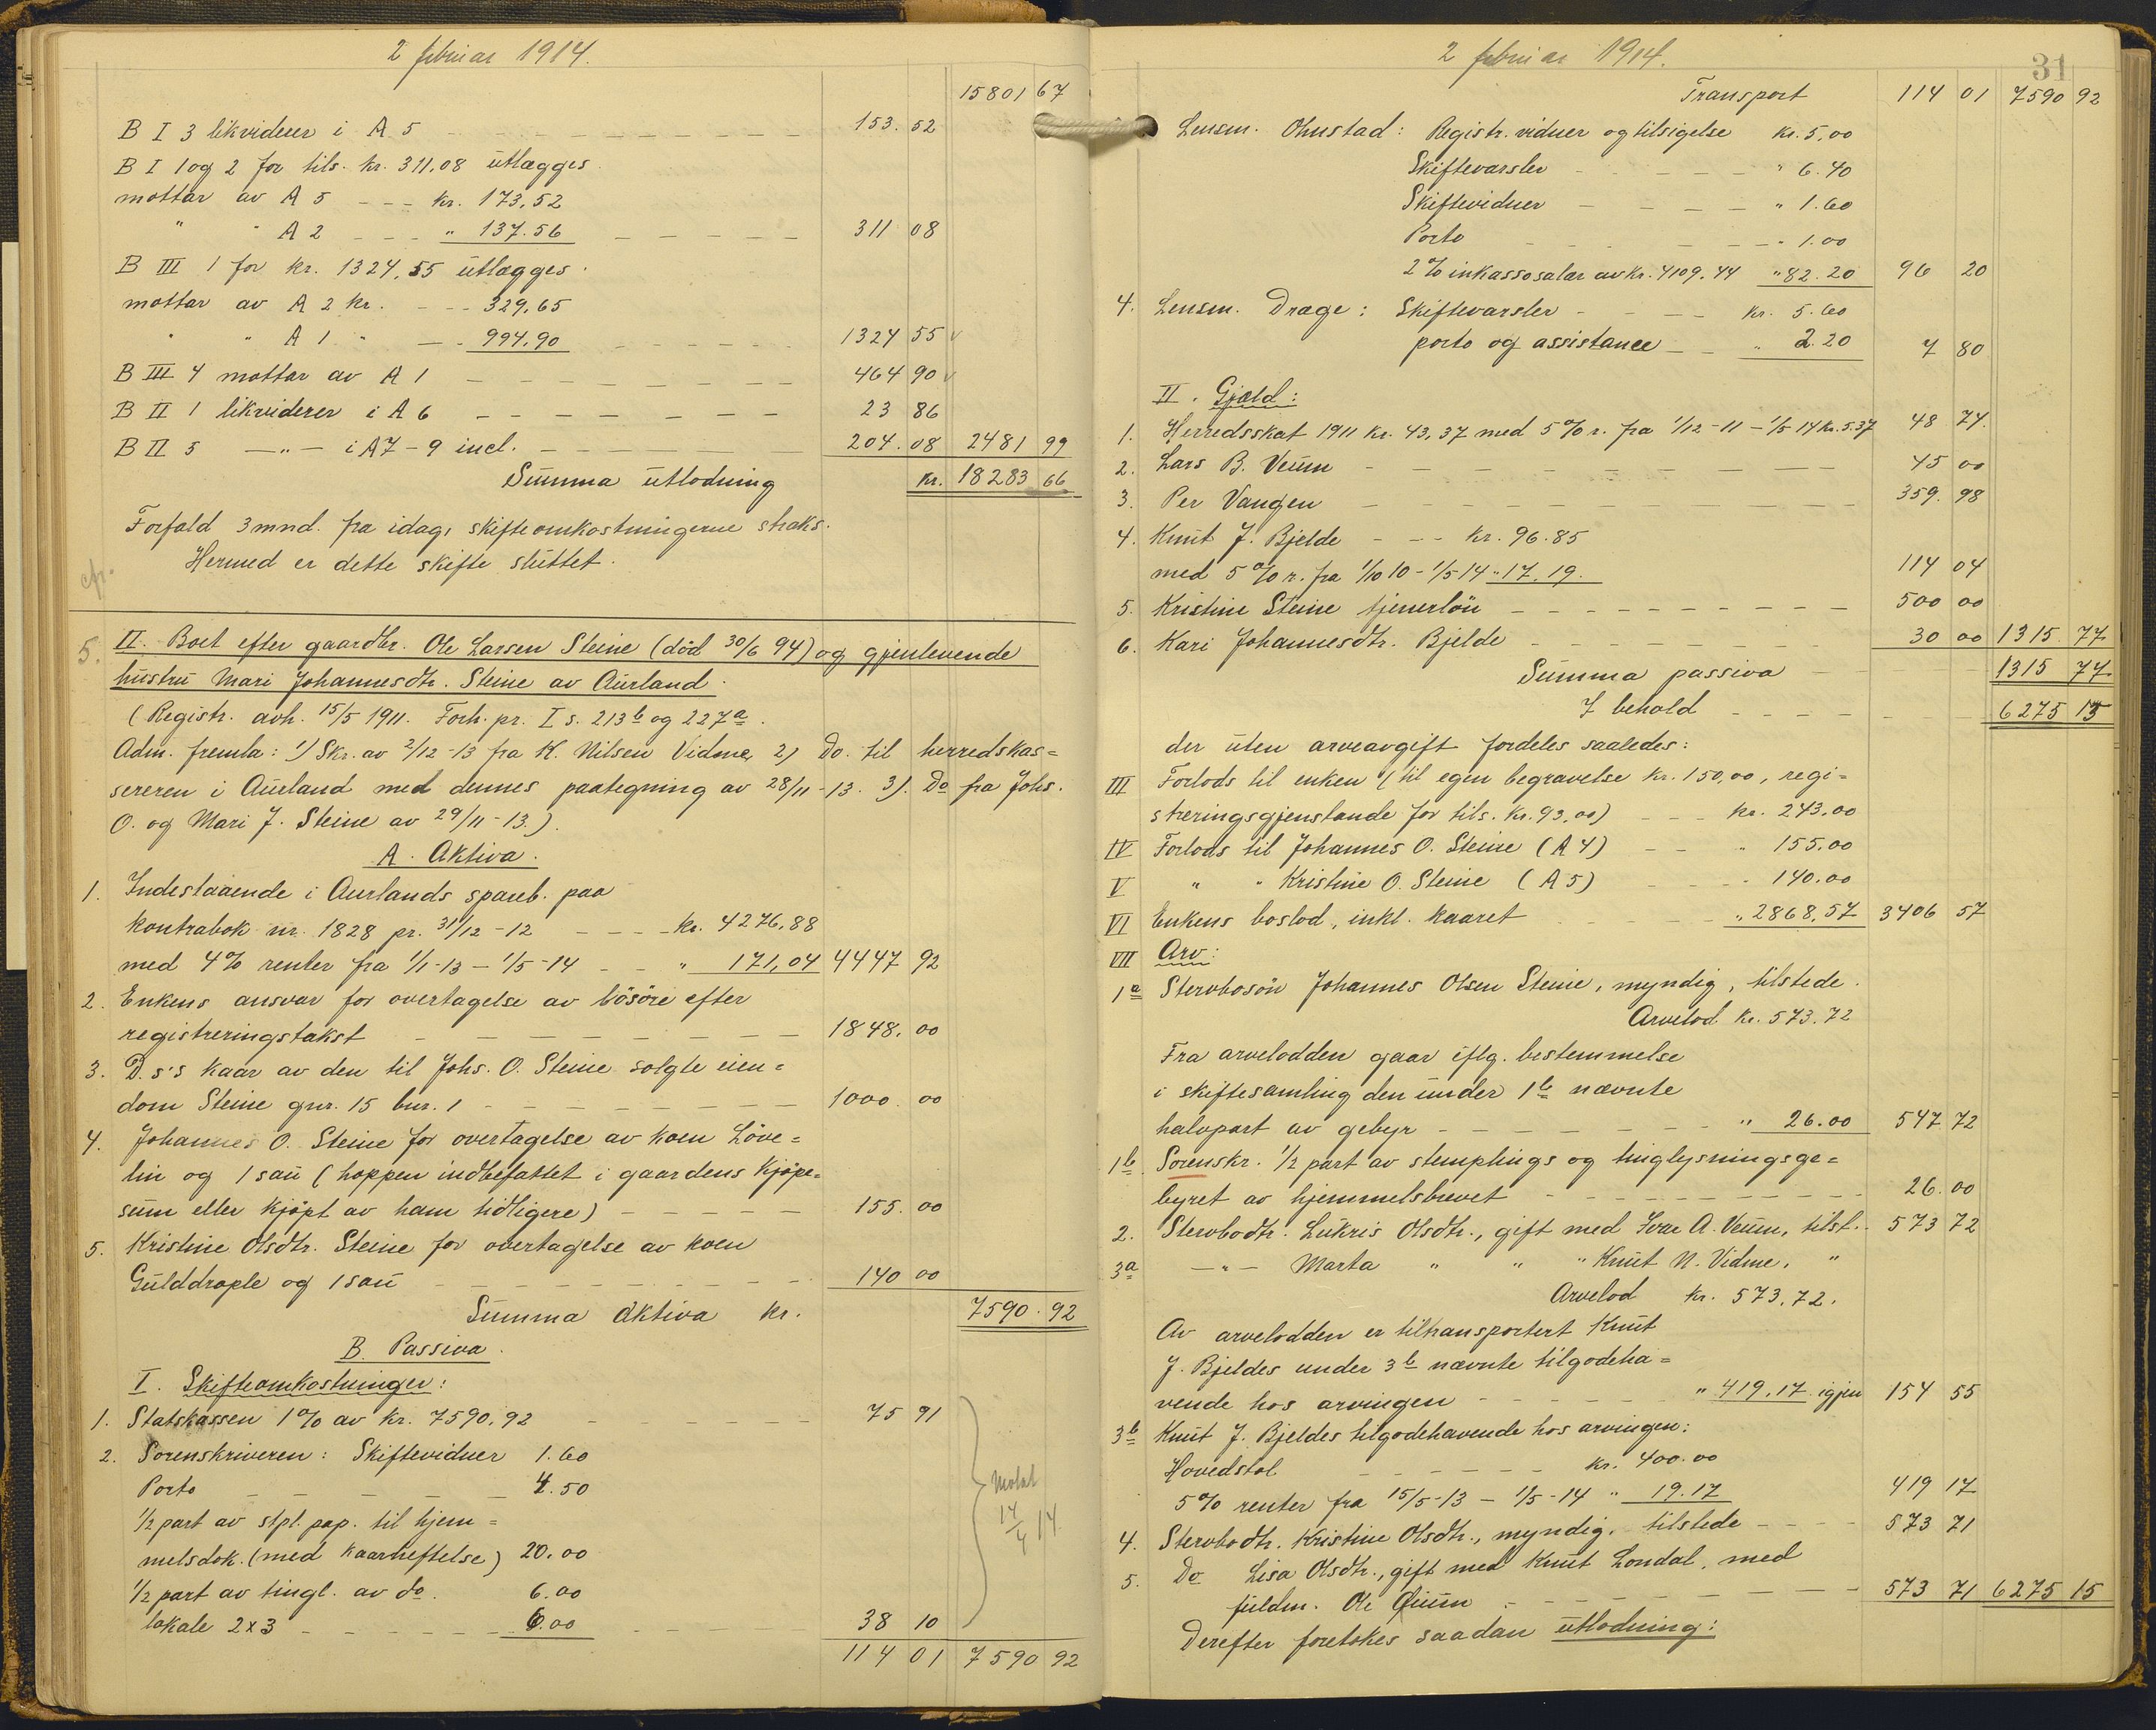 2 februar 1914.
15801 67
B I 3 likviderer i A 5 - - - 153.52
B I 1 og 2 for tils. kr. 311,08 utlægges
mottar av A 5 - - - kr. 173,52
" " A 2 - - - " 137.56 - - - 311 08
B III 1 for kr. 1324,55 utlægges
mottar av A 2 kr. - - - 329,65
" " A 1 " - - 994,90 - - - 1324 55 v
B III 4 mottar av A 1 - - - 464 90 v
B II 1 likviderer i A 6 - - - 23 86
B II 5 - " - i A 7 - 9 incl. - - - 204.08 2481 99
Summa utlodning kr. 18283 66
Forfald 3 mnd. fra idag, skifteomkostningerne straks.
Hermed er dette skifte sluttet.
cfr.
5. II. Boet efter gaardbr. Ole Larsen Steine (död 30/6 94) og gjenlevende
hustru Mari Johannesdtr. Steine av Aurland.
(Registr. avh. 15/5 1911. Forh. pr. I s. 213b og 227a.
Adm. fremla: 1) Skr. av 2/12-13 fra K. Nilsen Vidme, 2) Do. til herredskas=
sereren i Aurland med dennes paategning av 28/11-13. 3). Do fra Johs.
O. og Mari J. Steine av 29/11-13.)
A. Aktiva.
1. Indestaaende i Aurlands spareb. paa
kontrabok nr. 1828 pr. 31/12-12 - - - kr. 4276,88
med 4% renter fra 1/1-13 - 1/5-14 - - " 171,04 4447 92
2. Enkens ansvar for overtagelse av lösöre efter
registreringstakst - - - 1848.00
3. D.s's kaar av den til Johs. O. Steine solgte eien=
dom Steine gnr. 15 bnr. 1 - - - 1000.00
4. Johannes O. Steine for overtagelse av koen Löve=
lin og 1 sau (hoppen indbefattet i gaardens kjöpe=
sum eller kjöpt av ham tidligere) - - - 155.00
5. Kristine Olsdtr. Steine for overtagelse av koen
Gulddrople og 1 sau - - - 140 00
Summa aktiva kr. 7590.92
B. Passiva.
I. Skifteomkostninger:
1. Statskassen 1% av kr. 7590,92 - - - 75 91
2. Sorenskriveren: Skifteviduer 1.60
Porto - - - 4.50
1/2 part av stpl. pap. til hjem=
melsdok. (med kaarheftelse) 20.00
1/2 part av tingl. av do. 6.00
lokale 2x3 - - - 6.00 - - - 38 10
motat
14/4 14
114 01 7590 92
2 februar 1914.
31
Transport 114 01 7590 92
Lensm. Ohnstad: Registr. viduer og tilsigelse kr. 5,00
Skiftevarsler - - - " 6.40
Skifteviduer - - - " 1.60
Porto - - - " 1.00
2% inkassosalær av kr. 4109,44 " 82.20 96 20
4. Lensm. Drage: Skiftevarsler - - - kr. 5.60
porto og assistance - - " 2.20 7 80
II. Gjæld:
1. Herredsskat 1911 kr. 43,37 med 5% r. fra 1/12-11 - 1/5 14 kr. 5.37 48 74.
2. Lars B. Veum - - - 45 00
3. Per Vangen - - - 359.98
4. Knut J. Bjelde - - - kr. 96.85
med 5% r. fra 1/10 10 - 1/5 14 " 17.19. 114 04
5. Kristine Steine tjenerlön - - - 500 00
6. Kari Johannesdtr. Bjelde - - - 30 00 1315.77
Summa passiva - - 1315 77
I behold - - - 6275 15
der uten arveavgift fordeles saaledes:
III Forlods til enken (til egen begravelse kr. 150,00, regi=
streringsgjenstande for tils. kr. 93,00) - - - kr. 243.00
IV Forlods til Johannes O. Steine (A 4) - - " 155.00
V " " Kristine O. Steine (A 5) - - - " 140.00
VI Enkens boslod, inkl. kaaret - - - " 2868,57 3406 57
VII Arv:
1a Stervbosön Johannes Olsen Steine, myndig, tilstede.
Arvelod kr. 573.72
Fra arvelodden gaar iflg. bestemmelse
i skiftesamling den under 1b nævnte
halvpart av gebyr - - - " 26.00 547 72
1b Sorenskr. 1/2 part av stemplings og tinglysningsge=
byret av hjemmelsbrevet - - - 26.00
2. Stervbodtr. Lukris Olsdtr., gift med Ivar A. Veum, tilst. - 573 72
3a - " - Marta " " " Knut N. Vidme, "
Arvelod kr. 573,72.
Av arvelodden er tiltransportert Knut
J. Bjeldes under 3b nævnte tilgodeha=
vende hos arvingen - - - " 419.17 igjen 154 55
3b Knut J. Bjeldes tilgodehavende hos arvingen:
Hovedstol - - - kr. 400.00
5% renter fra 15/5-13 - 1/5-14 " 19.17 419 17
4. Stervbodtr. Kristine Olsdtr., myndig, tilstede - - - 573 71
5. Do Lisa Olsdtr., gift med Knut Londal, med
fuldm. Ole - - - 573 71 6275 15
Derefter foretokes saadan utlodning: